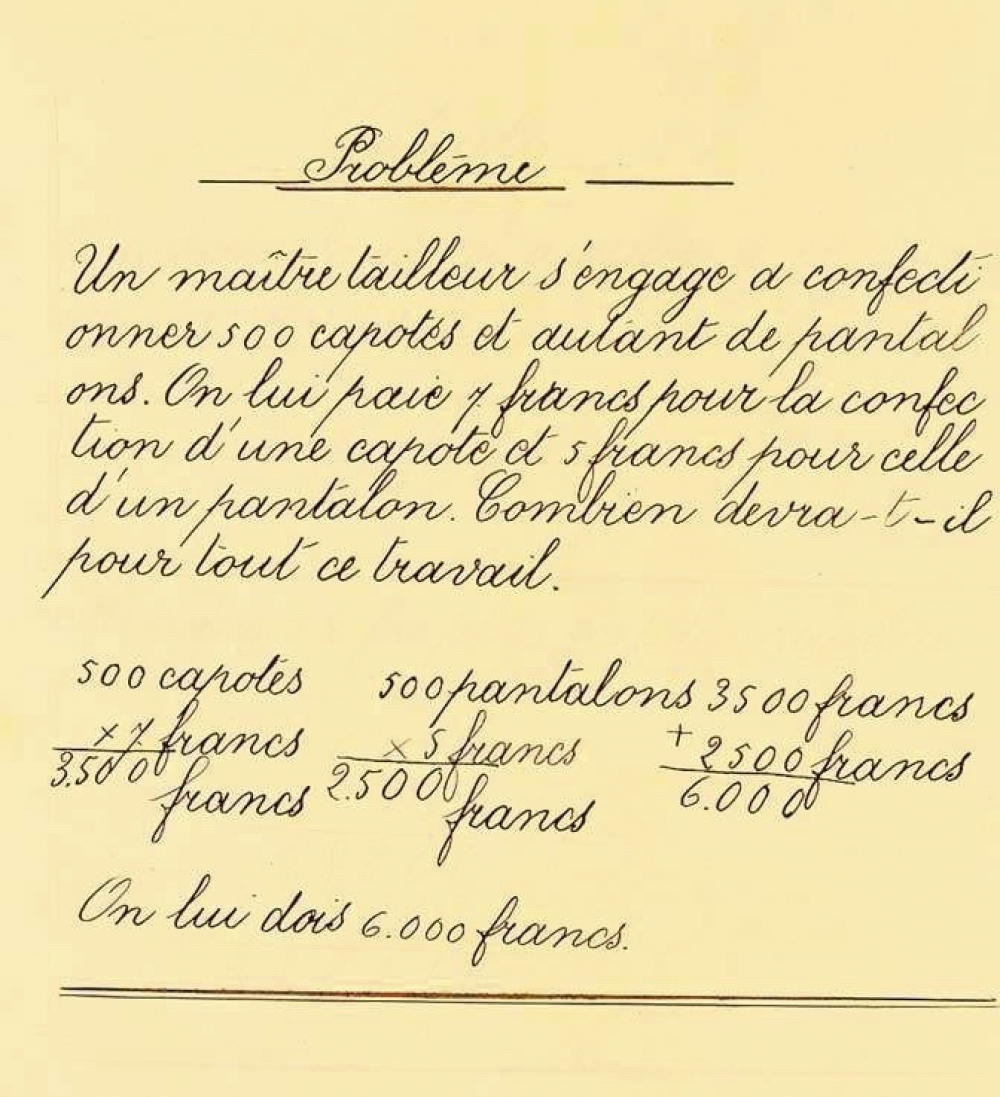 Problême
Un maître tailleur s'engage a confecti
onner 500 capotes et autant de pantal
ons. On lui paie 7 francs pour la confec
tion d'une capote et 5 francs pour celle
d'un pantalon. Combien devra-t-il
pour tout ce travail.
500 capotes 500 pantalons 3500 francs
× 7 francs × 5 francs + 2500 francs
3.500 francs 2.500 francs 6.000
On lui dois 6.000 francs.